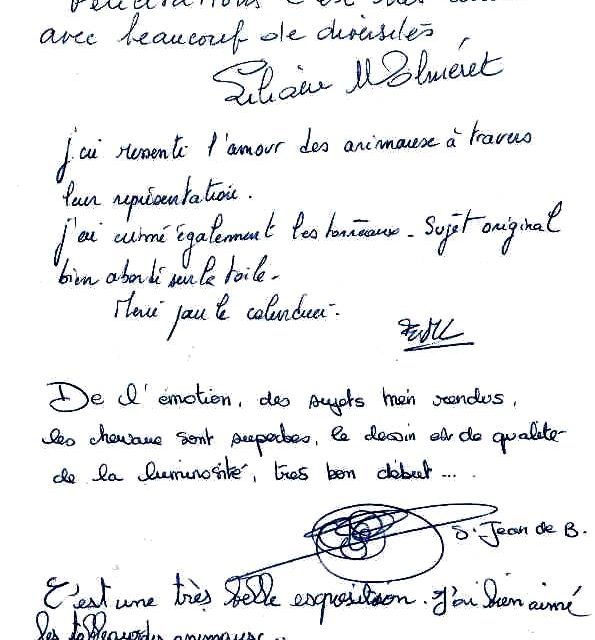 Félicitations c'est très
avec beaucoup de diversités
Liliane
j'ai ressenti l'amour des animaux à travers
leur représentation.
j'ai aimé également les tonneaux - Sujet original
bien abordé sur la toile -
Merci pour le calendrier -
De l'émotion, des sujets bien rendus,
les chevaux sont superbes, le dessin est de qualité
de la luminosité, très bon début ...
S. Jean de B.
C'est une très belle exposition. J'ai bien aimé
les tableaux des animaux ..